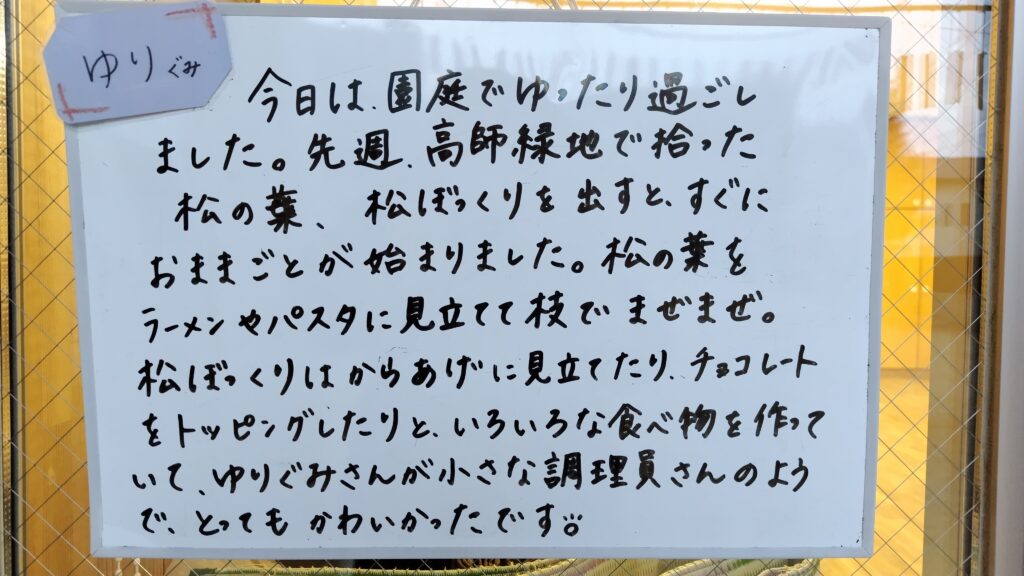 ゆりぐみ
今日は、園庭でゆったり過ごし
ました。先週、高師緑地で拾った
松の葉、松ぼっくりを出すと、すぐに
おままごとが始まりました。松の葉を
ラーメンやパスタに見立てて枝でまぜまぜ。
松ぼっくりはからあげに見立てたり、チョコレート
をトッピングしたりと、いろいろな食べ物を作って
いて、ゆりぐみさんが小さな調理員さんのよう
で、とってもかわいかったです。